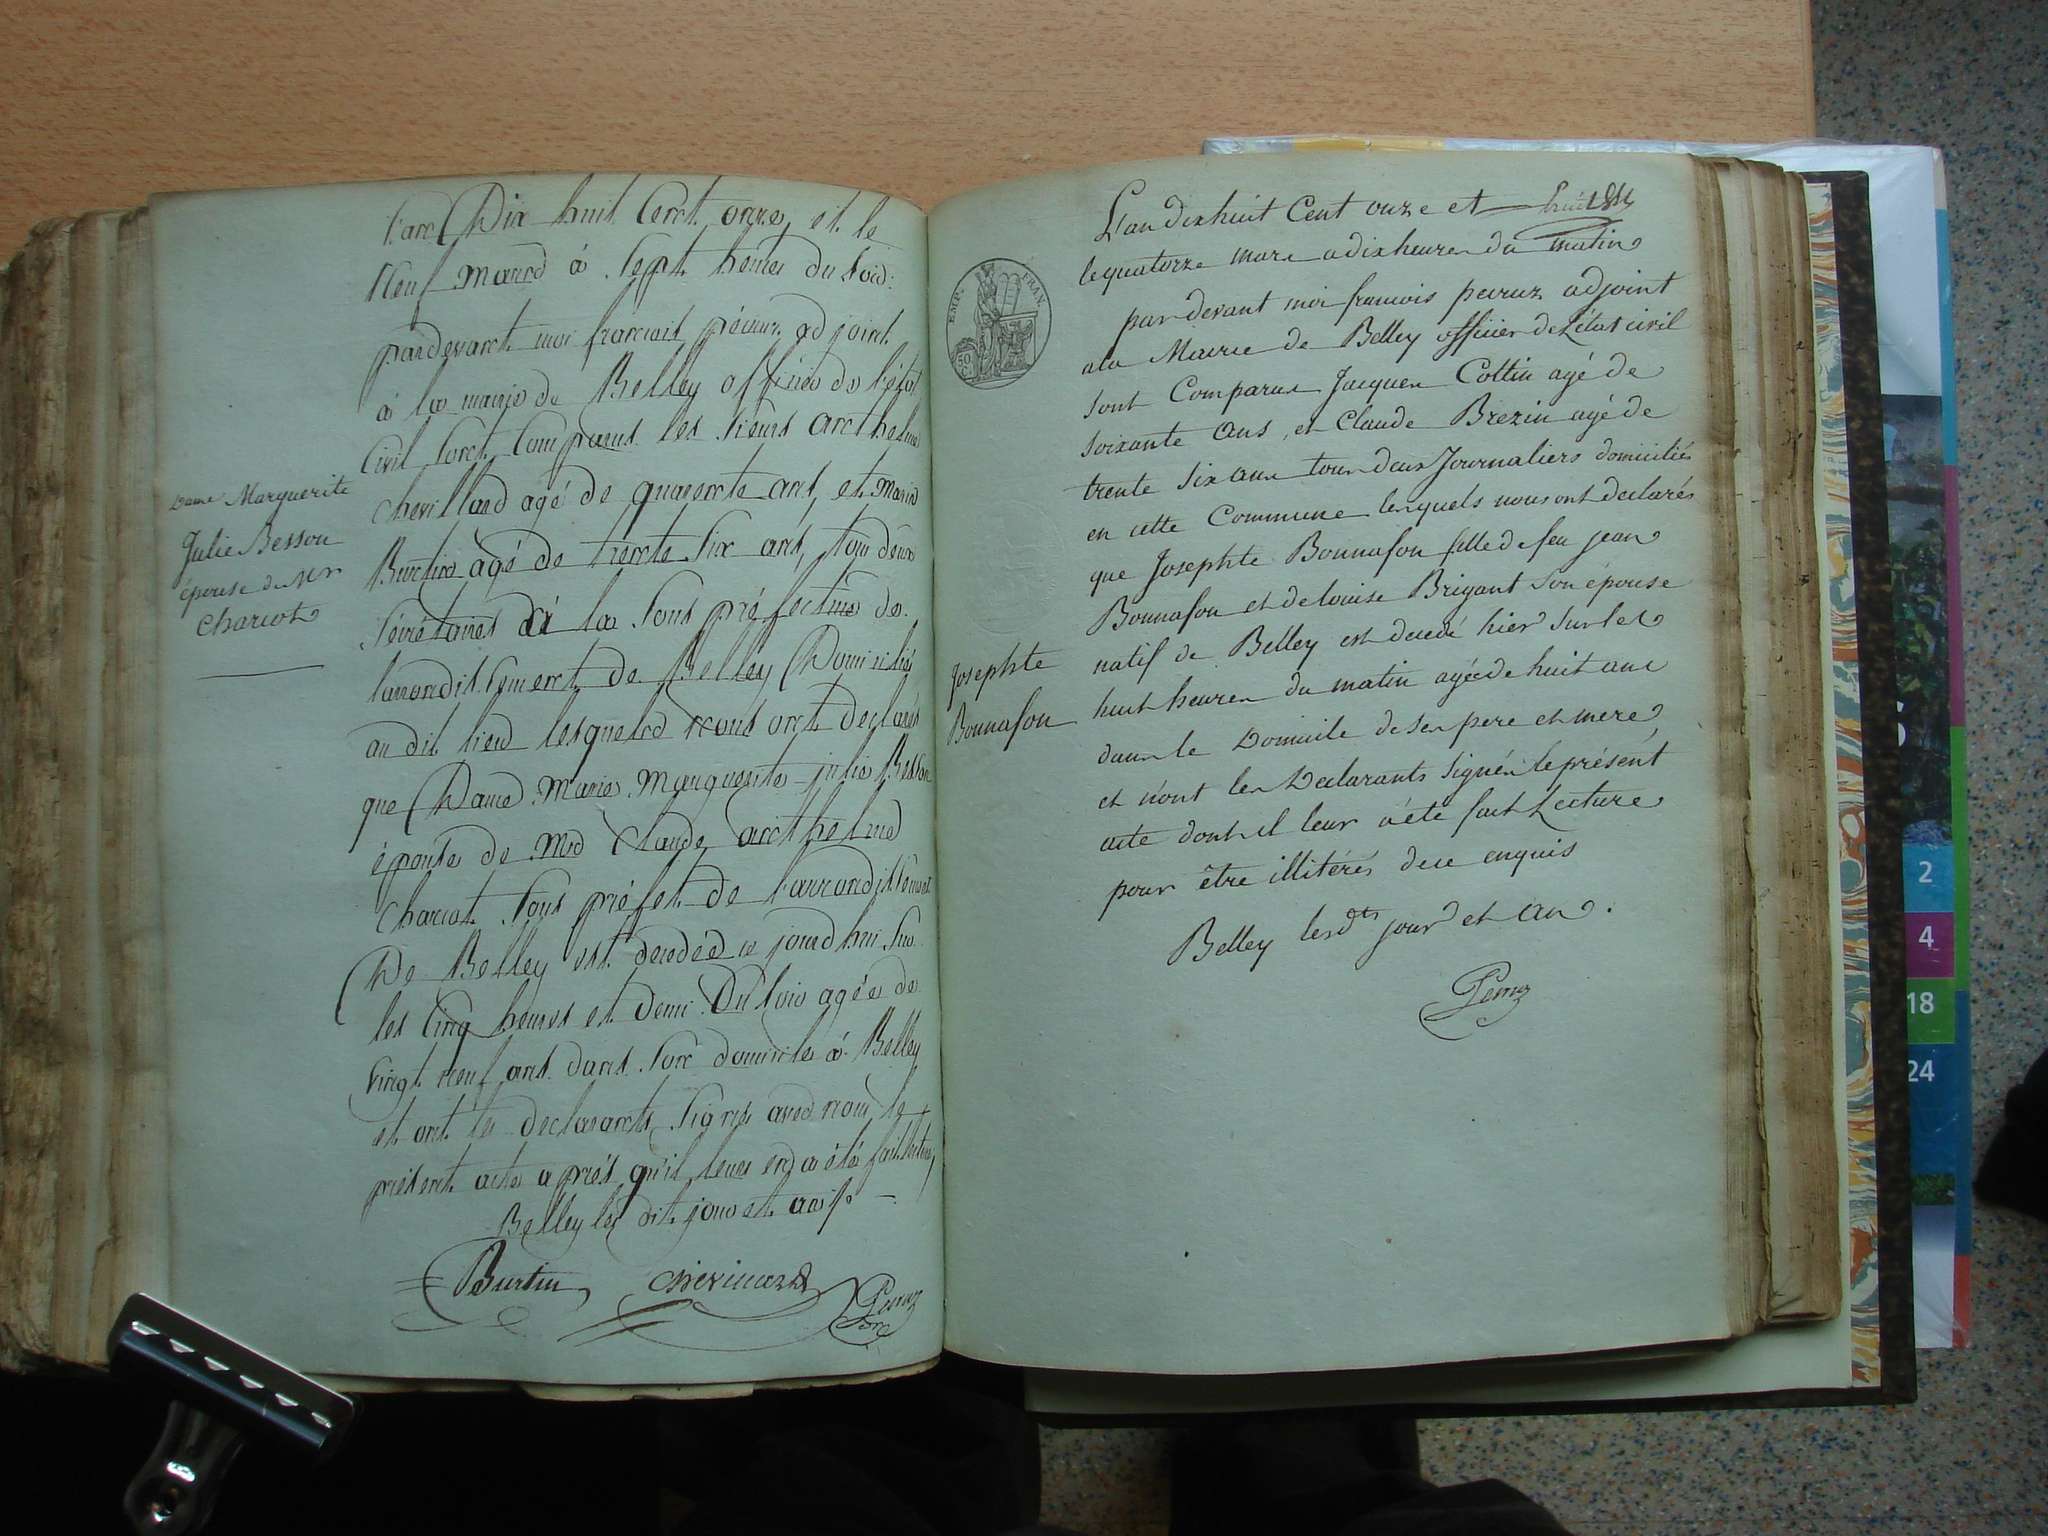 L'an Dix huit Cent onze, et le
Neuf mars à Sept heures du Soir
pardevant moi francois péruz adjoint
à la mairie de Belley officier de l'état
Civil Sont Comparus les Sieurs anthelme
Chevilland agé de quarente ans, et
Burtin agé de trente Six ans, tous deux
Sécrétaires à la Sous préfecture de
larrondissement de Belley Domiciliés
au dit lieu lesquels nous ont déclarés
que Dame Marie Marguerite julie Besson
épouse de Mr Claude anthelme
Charcot Sous préfet de l'arrondissement
De Belley est décédée ce jourdhui Sur
les Cinq heures et demi Du Soir agée de
vingt neuf ans dans Son domicile à Belley
et ont les déclarants Signés avec nous le
présent acte après qu'il leur en a été fait lecture,
Belley les dit jour et an
Burtin Chevilland Peruz
Dame Marguerite
Julie Besson
épouse du Mr
Charcot
L'an dix huit Cent onze et
le quatorze mars a dix heures du matin
par devant moi francois peruz adjoint
ala Mairie de Belley officier de L'état civil
sont Comparus Jacques Cottin agé de
soixante ans, et Claude Brezin agé de
trente six ans tous deux Journaliers domiciliés
en cette Commune lesquels nous ont declarés
que Josephte Bonnafou fille de feu jean
Bonnafou et de louise Brigant son épouse
natif de Belley est decedé hier sur les
huit heures du matin agée de huit ans
dans le Domicile de ses pere et mere,
et n'ont les Déclarants signés le présent
acte dont il leur a été fait Lecture
pour être illitérés de ce enquis
Belley lesdts jour et an.
Peruz
Josephte
Bonnafou
EMP. FRAN.
50
2
4
18
24